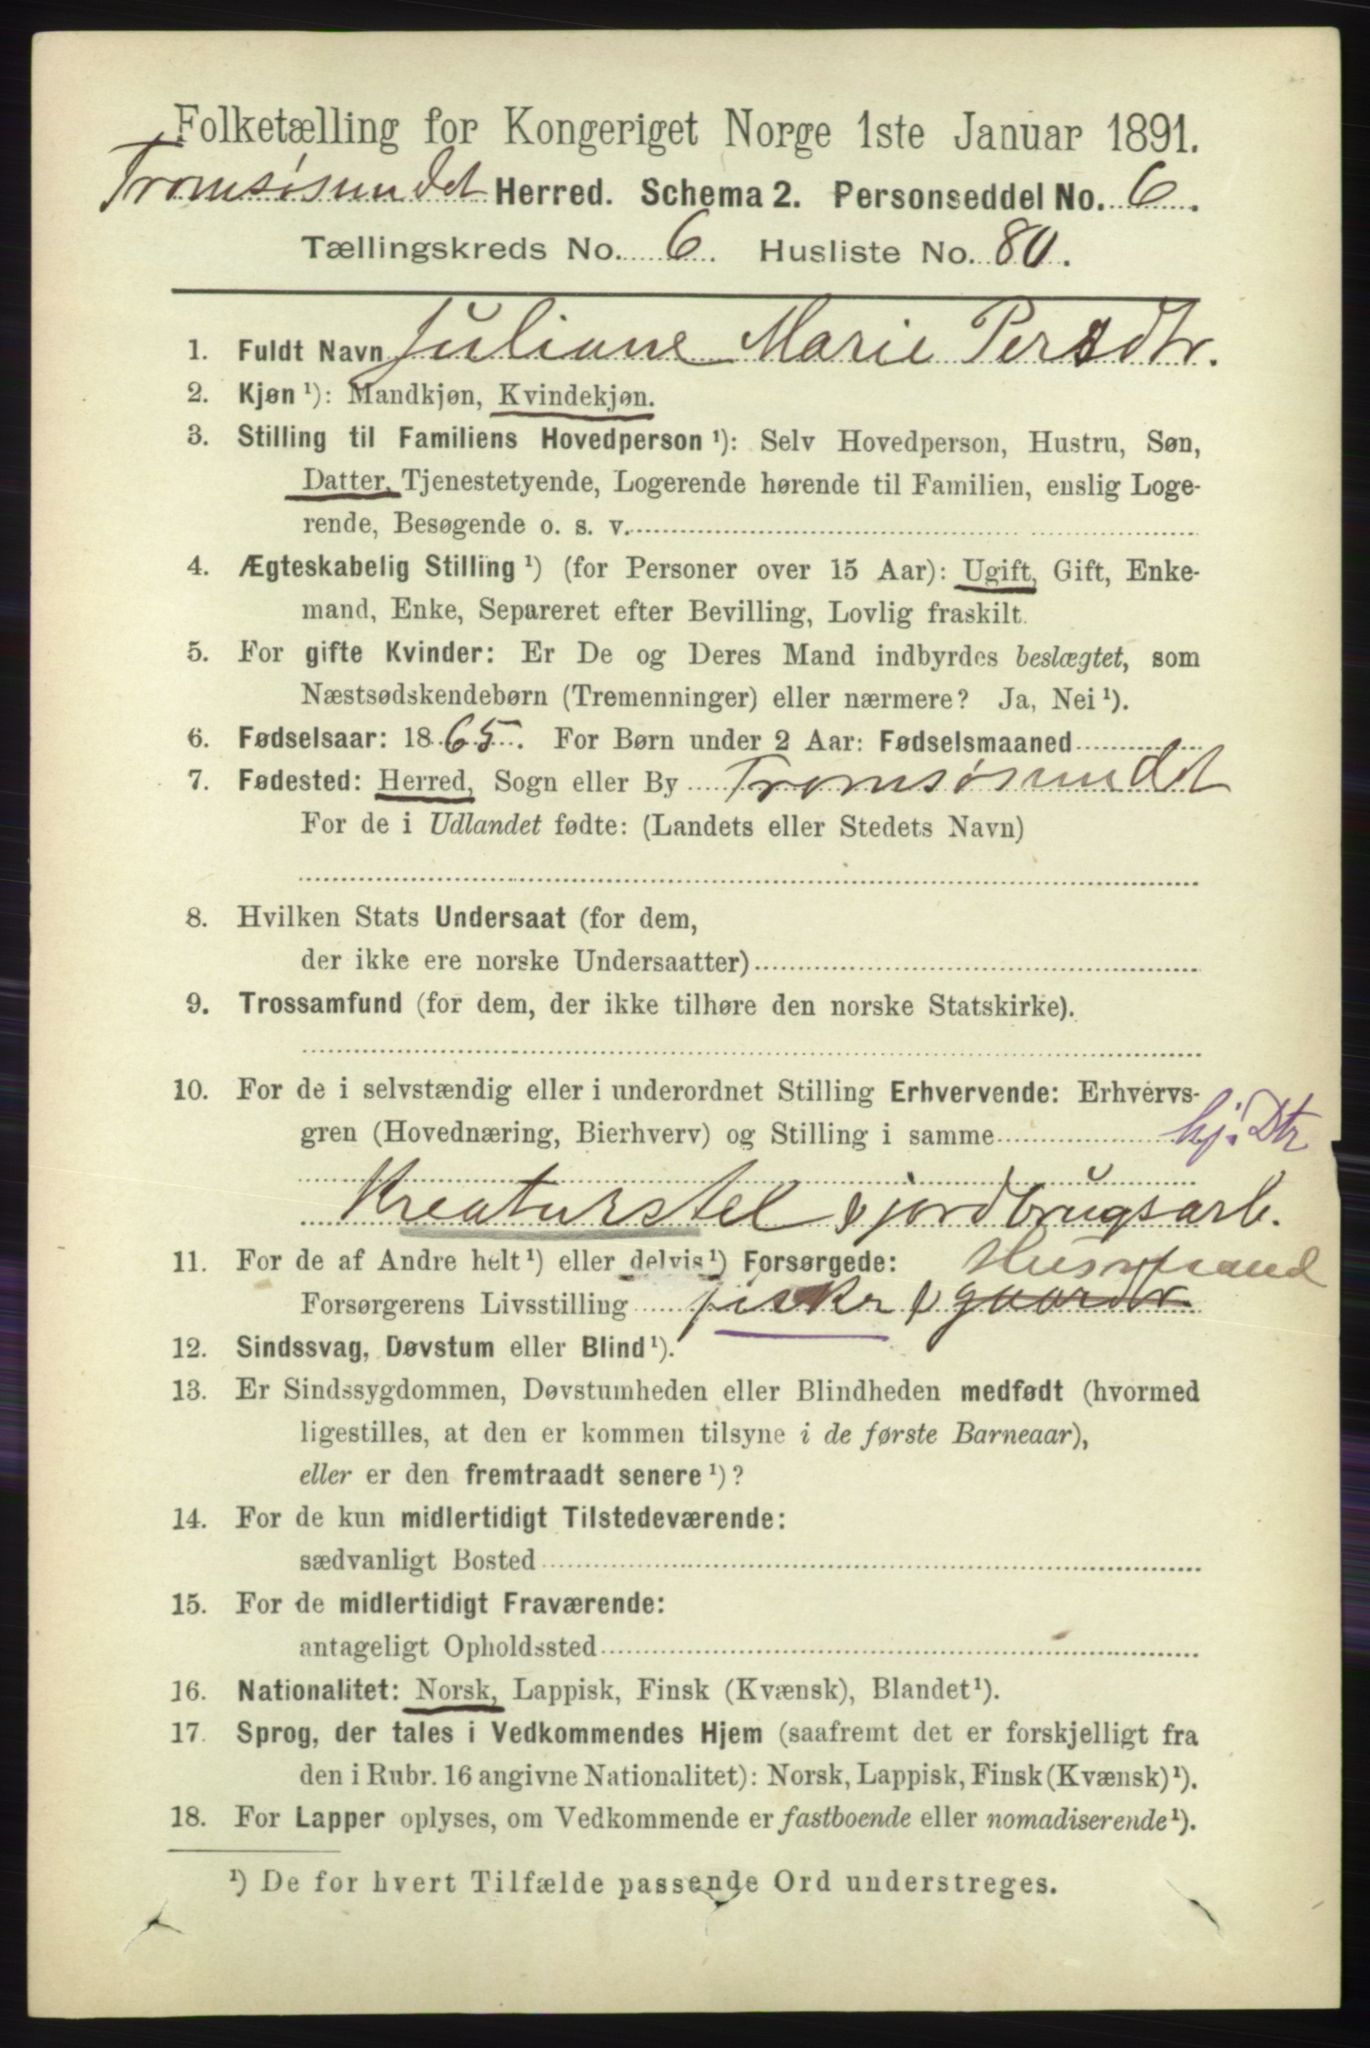 Folketælling for Kongeriget Norge 1ste Januar 1891.
Tromsøsundet Herred. Schema 2. Personseddel No. 6.
Tællingskreds No. 6. Husliste No. 80.
1. Fuldt Navn Juliane Marie Persdtr.
2. Kjøn ¹): Mandkjøn, Kvindekjøn.
3. Stilling til Familiens Hovedperson ¹): Selv Hovedperson, Hustru, Søn,
Datter, Tjenestetyende, Logerende hørende til Familien, enslig Loge-
rende, Besøgende o. s. v.
4. Ægteskabelig Stilling ¹) (for Personer over 15 Aar): Ugift, Gift, Enke-
mand, Enke, Separeret efter Bevilling, Lovlig fraskilt.
5. For gifte Kvinder: Er De og Deres Mand indbyrdes beslægtet, som
Næstsødskendebørn (Tremenninger) eller nærmere? Ja, Nei ¹).
6. Fødselsaar: 1865. For Børn under 2 Aar: Fødselsmaaned
7. Fødested: Herred, Sogn eller By Tromsøsundet
For de i Udlandet fødte: (Landets eller Stedets Navn)
8. Hvilken Stats Undersaat (for dem,
der ikke ere norske Undersaatter)
9. Trossamfund (for dem, der ikke tilhøre den norske Statskirke).
10. For de i selvstændig eller i underordnet Stilling Erhvervende: Erhvervs-
gren (Hovednæring, Bierhverv) og Stilling i samme hj. Dtr
Kreaturstel & jordbrugsarb.
11. For de af Andre helt ¹) eller delvis ¹) Forsørgede: Husmand
Forsørgerens Livsstilling fisker & gaardbr.
12. Sindssvag, Døvstum eller Blind ¹).
13. Er Sindssygdommen, Døvstumheden eller Blindheden medfødt (hvormed
ligestilles, at den er kommen tilsyne i de første Barneaar),
eller er den fremtraadt senere ¹)?
14. For de kun midlertidigt Tilstedeværende:
sædvanligt Bosted
15. For de midlertidigt Fraværende:
antageligt Opholdssted
16. Nationalitet: Norsk, Lappisk, Finsk (Kvænsk), Blandet ¹).
17. Sprog, der tales i Vedkommendes Hjem (saafremt det er forskjelligt fra
den i Rubr. 16 angivne Nationalitet): Norsk, Lappisk, Finsk (Kvænsk) ¹).
18. For Lapper oplyses, om Vedkommende er fastboende eller nomadiserende ¹).
¹) De for hvert Tilfælde passende Ord understreges.